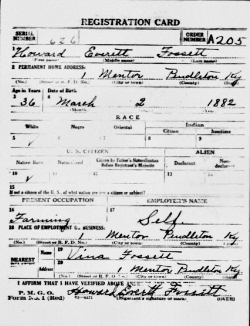 REGISTRATION CARD
SERIAL NUMBER 626 ORDER NUMBER A205
Howard Everett Fossett
(First name) (Middle name) (Last name)
2 PERMANENT HOME ADDRESS:
1 Mentor Pendleton Ky
(No.) (Street or R. F. D. No.) (City or town) (County) (State)
Age in Years Date of Birth
36 March 2 1882
RACE
White Negro Oriental Indian
Citizen Noncitizen
U. S. CITIZEN ALIEN
Native Born Naturalized Citizen by Father's Naturalization Before Registrant's Majority Declarant Non-declarant
15
If not a citizen of the U. S., of what nation are you a citizen or subject?
PRESENT OCCUPATION EMPLOYER'S NAME
Farming Self
18 PLACE OF EMPLOYMENT OR BUSINESS:
Mentor Pendleton Ky
(No.) (Street or R. F. D. No.) (City or town) (County) (State)
NEAREST
Vina Fossett
1 Mentor Pendleton Ky
(No.) (Street or R. F. D. No.) (City or town) (County) (State)
I AFFIRM THAT I HAVE VERIFIED ABOVE
P. M. G. O.
Form No. 1 (Red) Howard Everett Fossett
(Registrant's signature or mark) (OVER)